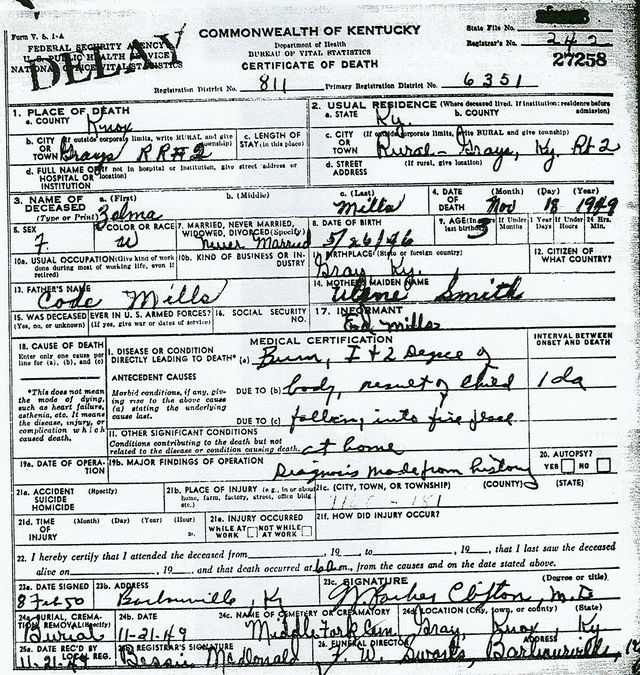 COMMONWEALTH OF KENTUCKY
Form V. S. 1-A
State File No.
FEDERAL SECURITY AGENCY
Department of Health
Registrar's No. 242
U. S. PUBLIC HEALTH SERVICE
BUREAU OF VITAL STATISTICS
NATIONAL OFFICE VITAL STATISTICS
CERTIFICATE OF DEATH
27258
DELAY
Registration District No. 811
Primary Registration District No. 6351
1. PLACE OF DEATH
a. COUNTY Knox
2. USUAL RESIDENCE (Where deceased lived. If institution: residence before admission)
a. STATE Ky.
b. COUNTY
b. CITY OR TOWN (If outside corporate limits, write RURAL and give township) Grays RR#2
c. LENGTH OF STAY (in this place)
c. CITY OR TOWN (If outside corporate limits, write RURAL and give township) Rural - Grays, Ky. Rt 2
d. FULL NAME OF HOSPITAL OR INSTITUTION (If not in hospital or institution, give street address or location)
d. STREET ADDRESS (If rural, give location)
3. NAME OF DECEASED (Type or Print)
a. (First) Zelma
b. (Middle)
c. (Last) Mills
4. DATE OF DEATH (Month) (Day) (Year) Nov 18 1949
5. SEX F
6. COLOR OR RACE W
7. MARRIED, NEVER MARRIED, WIDOWED, DIVORCED (Specify) Never Married
8. DATE OF BIRTH 5/26/46
9. AGE (In years last birthday) 3
If Under 1 Year Months Days
If Under 24 Hrs. Hours Min.
10a. USUAL OCCUPATION (Give kind of work done during most of working life, even if retired)
10b. KIND OF BUSINESS OR INDUSTRY
11. BIRTHPLACE (State or foreign country) Gray Ky.
12. CITIZEN OF WHAT COUNTRY?
13. FATHER'S NAME Code Mills
14. MOTHER'S MAIDEN NAME Smith
15. WAS DECEASED EVER IN U. S. ARMED FORCES? (Yes, no, or unknown) (If yes, give war or dates of service)
16. SOCIAL SECURITY NO.
17. INFORMANT Mills
18. CAUSE OF DEATH
Enter only one cause per line for (a), (b), and (c)
*This does not mean the mode of dying, such as heart failure, asthenia, etc. It means the disease, injury, or complication which caused death.
MEDICAL CERTIFICATION
INTERVAL BETWEEN ONSET AND DEATH
I. DISEASE OR CONDITION DIRECTLY LEADING TO DEATH* (a) Burn, 1 & 2 Degree of
ANTECEDENT CAUSES
Morbid conditions, if any, giving rise to the above cause (a) stating the underlying cause last.
DUE TO (b) body, result of child 1 da
DUE TO (c) falling into fire place
II. OTHER SIGNIFICANT CONDITIONS
Conditions contributing to the death but not related to the disease or condition causing death. at home
19a. DATE OF OPERATION
19b. MAJOR FINDINGS OF OPERATION
Diagnosis made from history
20. AUTOPSY?
YES NO
21a. ACCIDENT SUICIDE HOMICIDE (Specify)
21b. PLACE OF INJURY (e.g., in or about home, farm, factory, street, office bldg., etc.)
21c. (CITY, TOWN, OR TOWNSHIP) (COUNTY) (STATE)
21d. TIME OF INJURY (Month) (Day) (Year) (Hour) m.
21e. INJURY OCCURRED
WHILE AT WORK NOT WHILE AT WORK
21f. HOW DID INJURY OCCUR?
22. I hereby certify that I attended the deceased from , 19 , to , 19 , that I last saw the deceased
alive on , 19 , and that death occurred at m., from the causes and on the date stated above.
23a. DATE SIGNED 8 Feb 50
23b. ADDRESS Barbourville, Ky
23c. SIGNATURE Clifton, M.D.
(Degree or title)
24a. BURIAL, CREMATION, REMOVAL (Specify) Burial
24b. DATE 11-21-49
24c. NAME OF CEMETERY OR CREMATORY Middle Fork Cem
24d. LOCATION (City, town, or county) (State) Gray, Knox, Ky
25a. DATE REC'D BY LOCAL REG. 11-21-49
25b. REGISTRAR'S SIGNATURE Bessie McDonald
26. FUNERAL DIRECTOR
ADDRESS Barbourville,